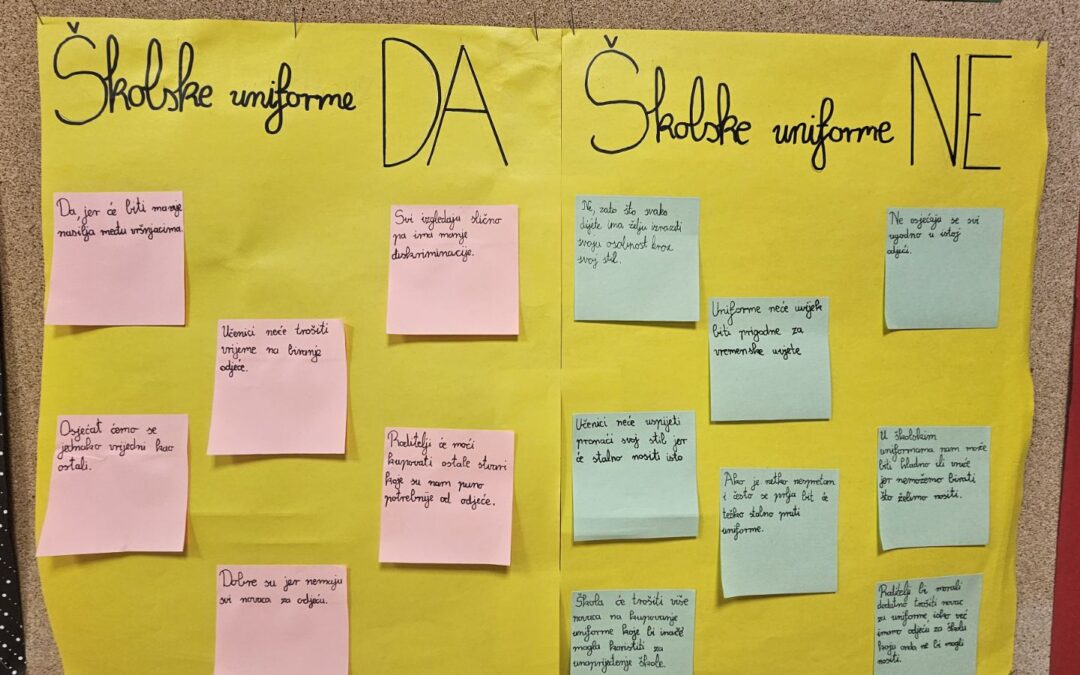 Školske uniforme DA
Da, jer će biti manje
nasilja među vršnjacima.
Svi izgledaju slično
pa ima manje
diskriminacije.
Učenici neće trošiti
vrijeme na biranje
odjeće.
Osjećat ćemo se
jednako vrijedni kao
ostali.
Roditelji će moći
kupovati ostale stvari
koje su nam puno
potrebnije od odjeće.
Dobre su jer nemaju
svi novaca za odjeću.
Školske uniforme NE
Ne, zato što svako
dijete ima želju izraziti
svoju osobnost kroz
svoj stil.
Ne osjećaja se svi
ugodno u istoj
odjeći.
Uniforme neće uvijek
biti prigodne za
vremenske uvjete
Učenici neće uspijeti
pronaći svoj stil jer
će stalno nositi isto
U školskim
uniformama nam može
biti hladno ili vruće
jer nemožemo birati
što želimo nositi.
Ako je netko nespretan
i često se prlja bit će
teško stalno prati
uniforme.
Škola će trošiti više
novaca na kupovanje
uniforme koje bi inače
mogla koristiti za
unaprijeđenje škole.
Roditelji bi morali
dodatno trošiti novac
za uniforme iako već
imamo odjeću za školu
koju onda ne bi mogli
nositi.